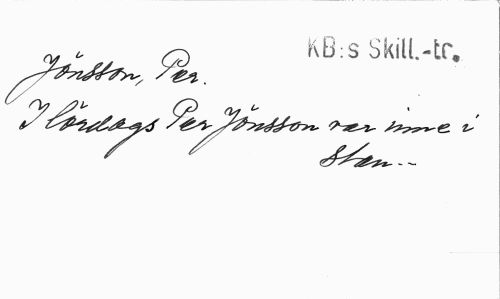 KB:s Skill.-tr.
Jönsson, Per.
I lördags Per Jönsson var inne i
stan--